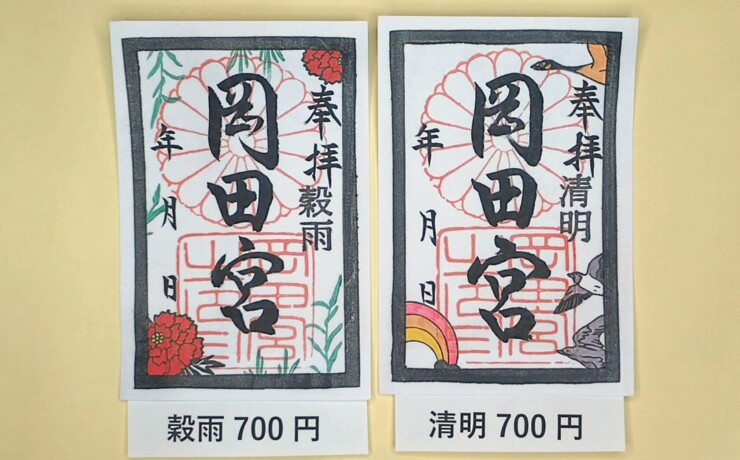 奉拝
穀雨
岡田宮
年 月 日
穀雨 700 円
奉拝
清明
岡田宮
年 月 日
清明 700 円